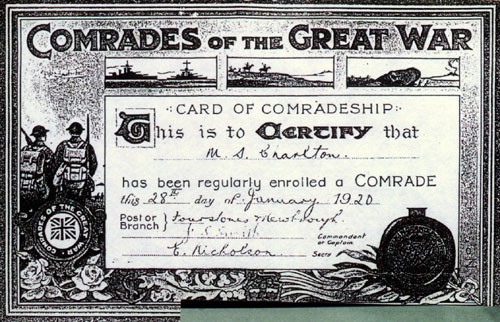 COMRADES OF THE GREAT WAR
CARD OF COMRADESHIP:
This is to CERTIFY that
M. S. Charlton.
has been regularly enrolled a COMRADE
this 28th day of January 1920
Post or Branch } Fourstones Newbrough.
Commandant or Captain
E. Nicholson Secty
COMRADES OF THE GREAT